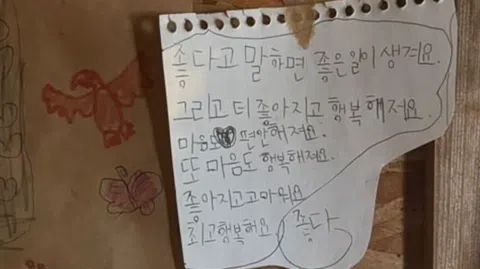 좋다고 말하면 좋은 일이 생겨요.
그리고 더 좋아지고 행복해져요.
마음도 편안해져요.
또 마음도 행복해져요.
좋아지고 고마워요
최고 행복해요 좋다